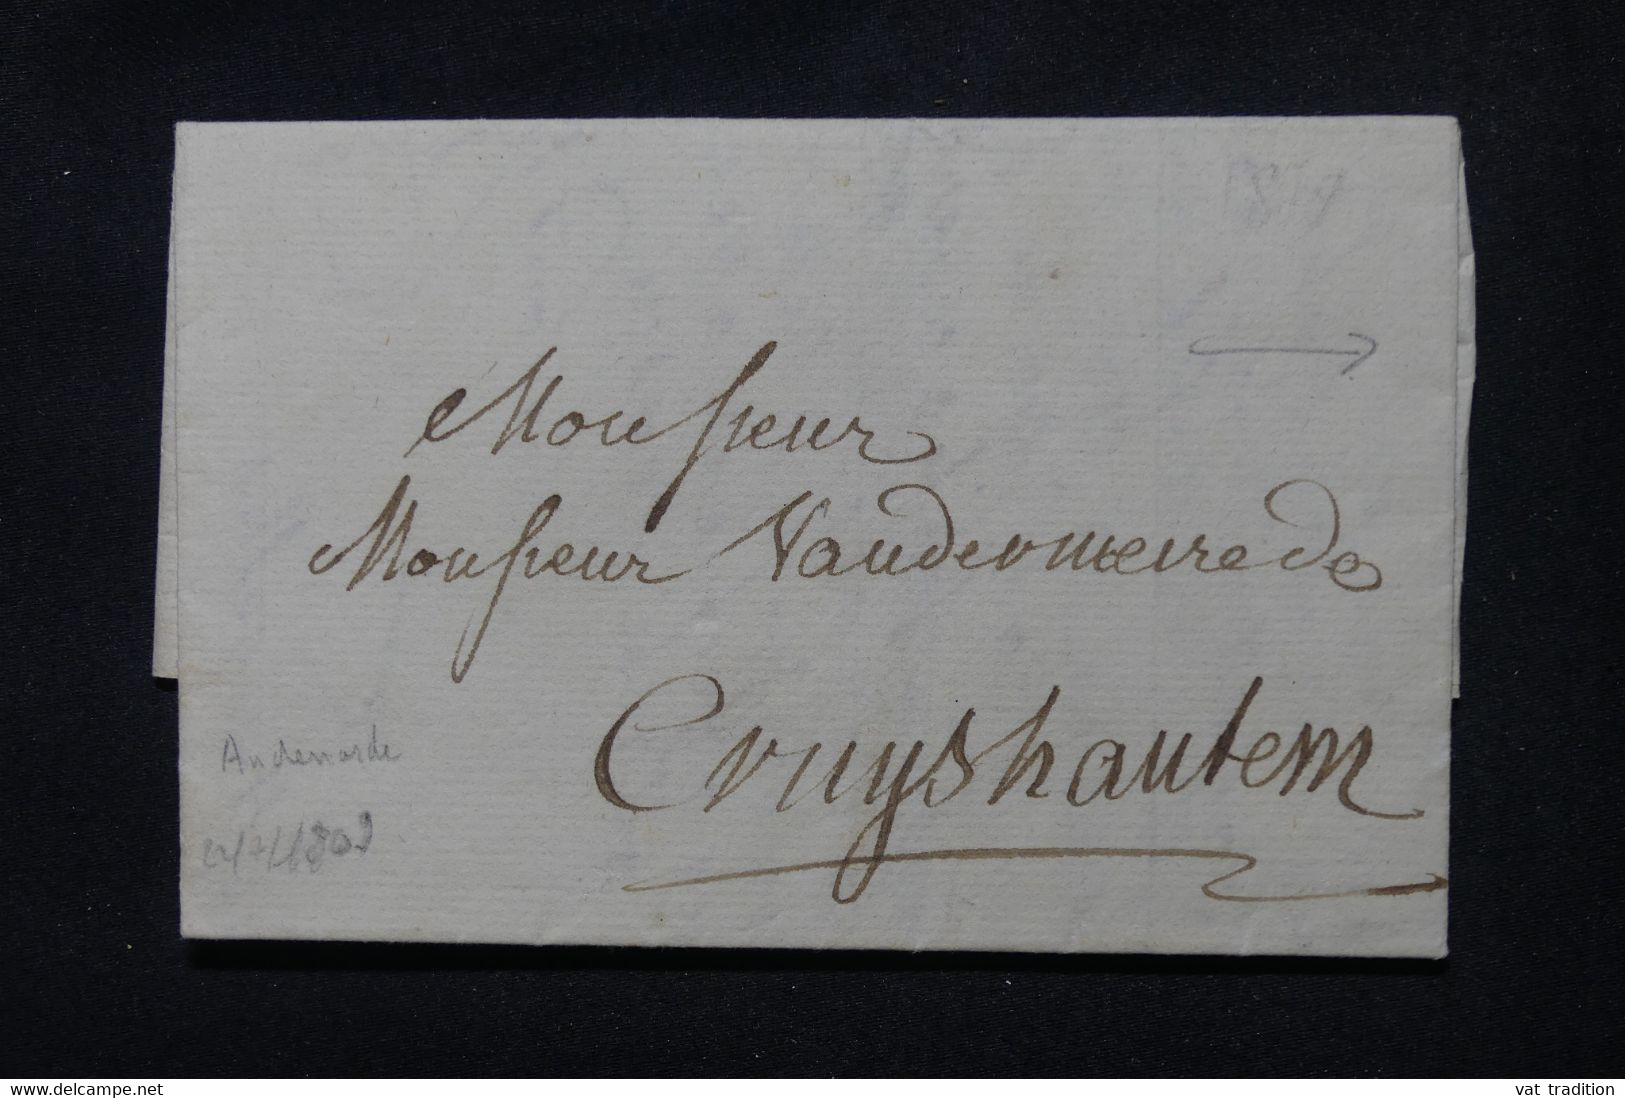 Monsieur
Monsieur Vandermeirede
Cruyshautem
Audenarde
delcampe.net
vat tradition